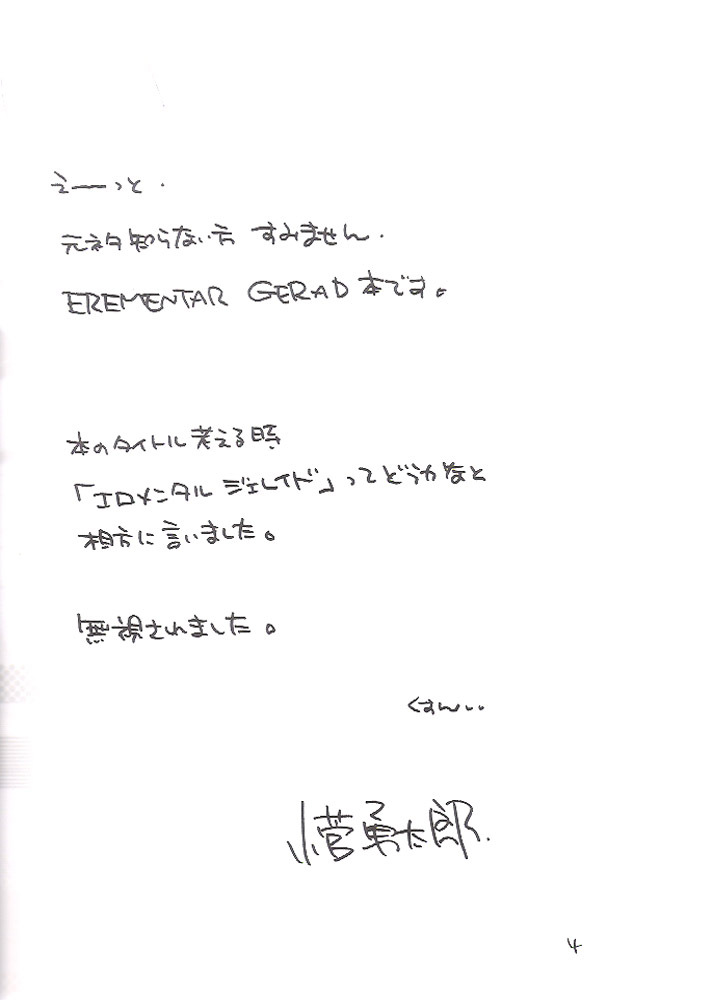 えーっと．
元ネタ知らない方 すみません．
EREMENTAR GERAD 本です。
本のタイトル考える時
「エロメンタル ジェレイド」ってどうかなと
相方に言いました。
無視されました。
くすん..
小菅勇太郎.
4